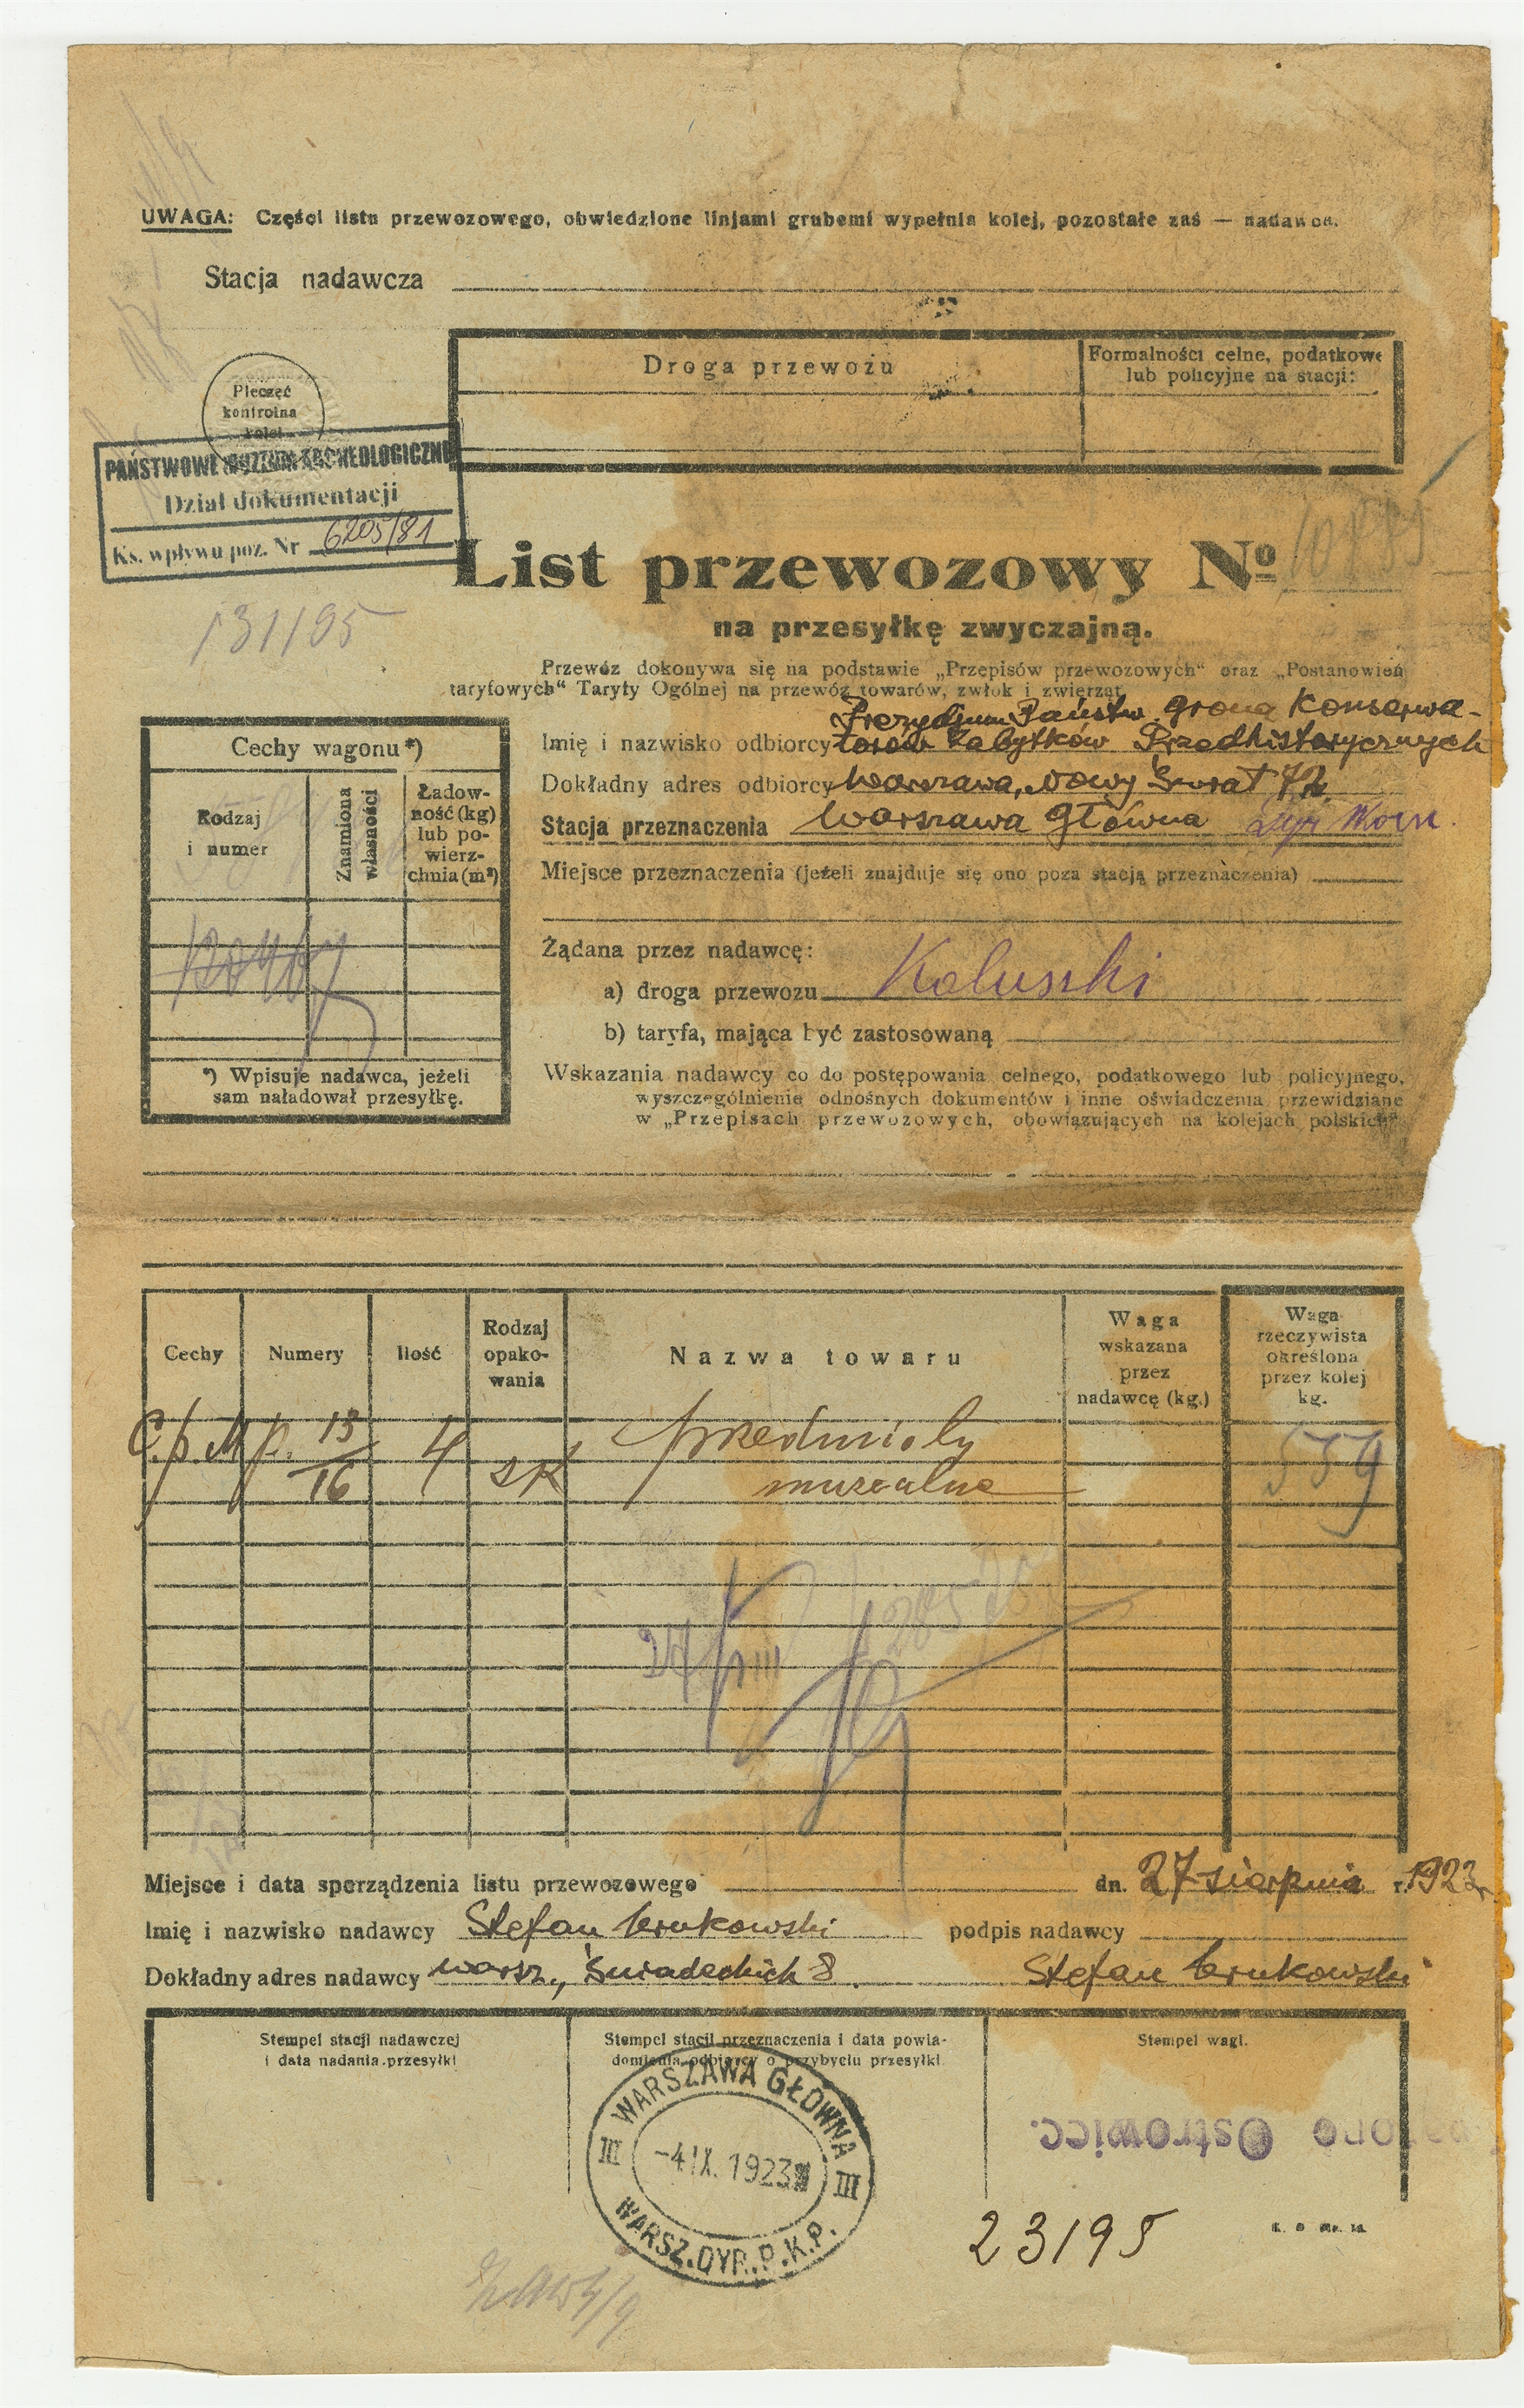 UWAGA: Części listu przewozowego, obwiedzione linjami grubemi wypełnia kolej, pozostałe zaś — nadawca.
Stacja nadawcza
Droga przewozu
Formalności celne, podatkowe
lub policyjne na stacji:
Pieczęć
kontrolna
kolei
PAŃSTWOWE MUZEUM ARCHEOLOGICZNE
Dział dokumentacji
Ks. wpływu poz. Nr 6205/81
List przewozowy №
131195
na przesyłkę zwyczajną.
Przewóz dokonywa się na podstawie „Przepisów przewozowych“ oraz „Postanowień
taryfowych“ Taryfy Ogólnej na przewóz towarów, zwłok i zwierząt.
Prezydjum Państw. grona Konserwa-
Imię i nazwisko odbiorcy torów Zabytków Przedhistorycznych
Dokładny adres odbiorcy Warszawa, Nowy Świat 72
Stacja przeznaczenia Warszawa Główna
Miejsce przeznaczenia (jeżeli znajduje się ono poza stacją przeznaczenia)
Żądana przez nadawcę:
a) droga przewozu Koluszki
b) taryfa, mająca być zastosowaną
Wskazania nadawcy co do postępowania celnego, podatkowego lub policyjnego,
wyszczególnienie odnośnych dokumentów i inne oświadczenia przewidziane
w „Przepisach przewozowych, obowiązujących na kolejach polskich“
Cechy wagonu *)
Rodzaj
i numer
Znamiona
własności
Ładow-
ność (kg)
lub po-
wierz-
chnia (m²)
*) Wpisuje nadawca, jeżeli
sam naładował przesyłkę.
Cechy
Numery
Ilość
Rodzaj
opako-
wania
Nazwa towaru
Waga
wskazana
przez
nadawcę (kg.)
Waga
rzeczywista
określona
przez kolej
kg.
C.p.M.p. 13/16 4 sk przedmioty
muzealne
559
27/VIII
Miejsce i data sporządzenia listu przewozowego dn. 27 sierpnia r. 1923
Imię i nazwisko nadawcy Stefan Krukowski podpis nadawcy
Dokładny adres nadawcy Warsz., Śniadeckich 8. Stefan Krukowski
Stempel stacji nadawczej
i data nadania przesyłki
Stempel stacji przeznaczenia i data powia-
domienia odbiorcy o przybyciu przesyłki
Stempel wagi.
WARSZAWA GŁÓWNA
III -4 IX. 1923 III
WARSZ.DYR.P.K.P.
Ostrowiec.
23195